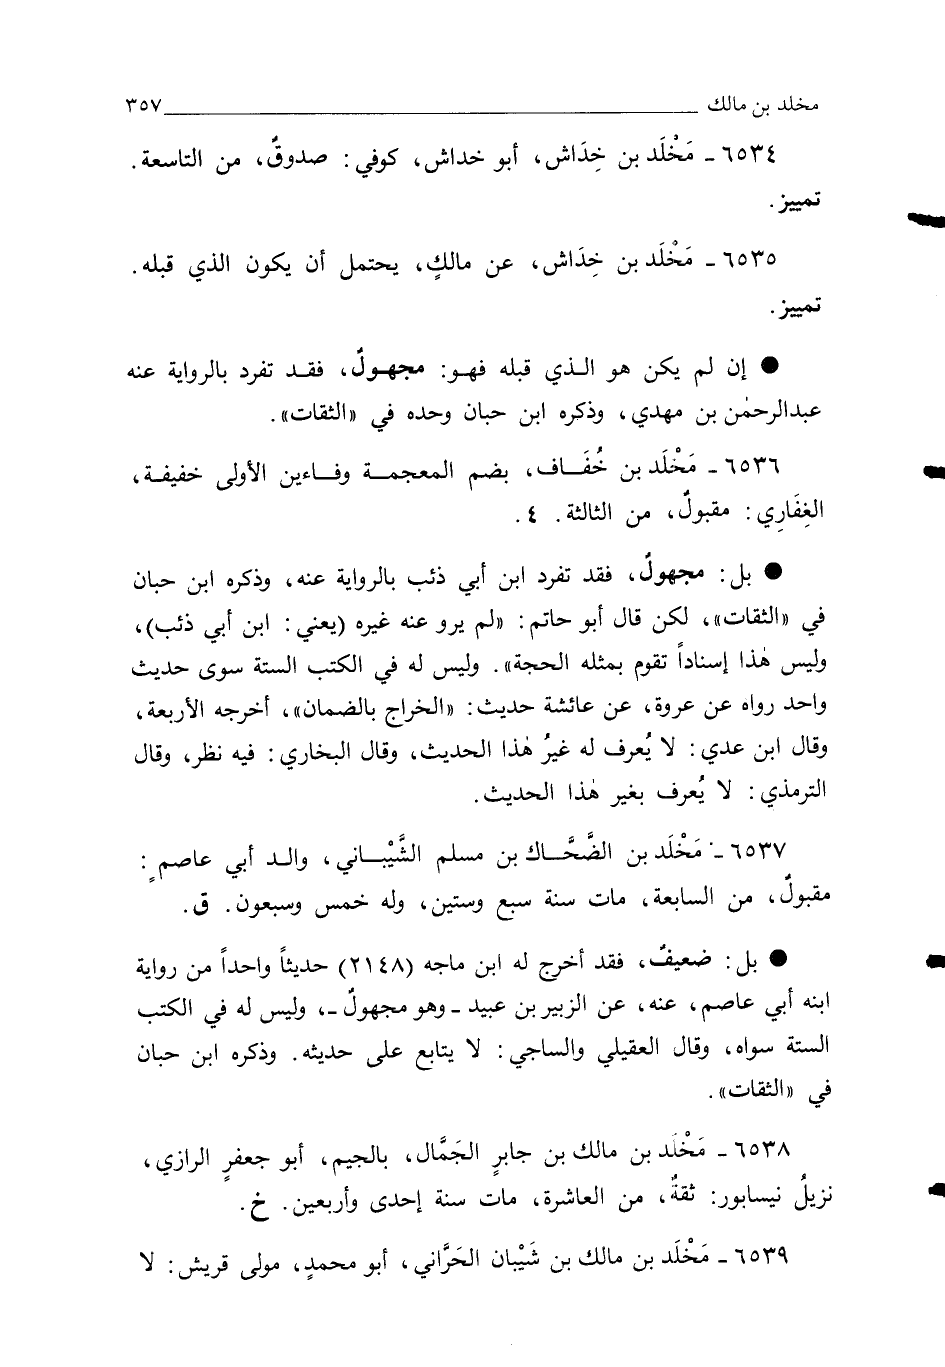 مخلد بن مالك ٣٥٧
٦٥٣٤ ـ مَخْلَد بن خِدَاش، أبو خداش، كوفي: صدوقٌ، من التاسعة.
تمييز.
٦٥٣٥ ـ مَخْلَد بن خِدَاش، عن مالكٍ، يحتمل أن يكون الذي قبله.
تمييز.
● إن لم يكن هو الـذي قبله فهـو: مجهـولٌ، فقـد تفرد بالرواية عنه
عبدالرحمٰن بن مهدي، وذكره ابن حبان وحده في «الثقات».
٦٥٣٦ ـ مَخْلَد بن خُفَـاف، بضم المعجمـة وفـاءين الأولى خفيفـة،
الغِفَارِي: مقبولٌ، من الثالثة. ٤.
● بل: مجهولٌ، فقد تفرد ابن أبي ذئب بالرواية عنه، وذكره ابن حبان
في «الثقات»، لكن قال أبو حاتم: «لم يرو عنه غيره (يعني: ابن أبي ذئب)،
وليس هٰذا إسناداً تقوم بمثله الحجة». وليس له في الكتب الستة سوى حديث
واحد رواه عن عروة، عن عائشة حديث: «الخراج بالضمان»، أخرجه الأربعة،
وقال ابن عدي: لا يُعرف له غيرُ هٰذا الحديث، وقال البخاري: فيه نظر، وقال
الترمذي: لا يُعرف بغير هٰذا الحديث.
٦٥٣٧ ـ مَخْلَد بن الضَّحَّـاك بن مسلم الشَّيْبـاني، والـد أبي عاصمٍ:
مقبولٌ، من السابعة، مات سنة سبع وستين، وله خمس وسبعون. ق.
● بل: ضعيفٌ، فقد أخرج له ابن ماجه (٢١٤٨) حديثاً واحداً من رواية
ابنه أبي عاصم، عنه، عن الزبير بن عبيد ـ وهو مجهولٌ ـ، وليس له في الكتب
الستة سواه، وقال العقيلي والساجي: لا يتابع على حديثه. وذكره ابن حبان
في «الثقات».
٦٥٣٨ ـ مَخْلَد بن مالك بن جابرٍ الجَمَّال، بالجيم، أبو جعفرٍ الرازي،
نزيلُ نيسابور: ثقةٌ، من العاشرة، مات سنة إحدى وأربعين. خ.
٦٥٣٩ ـ مَخْلَد بن مالك بن شَيْبان الحَرَّاني، أبو محمدٍ، مولى قريش: لا